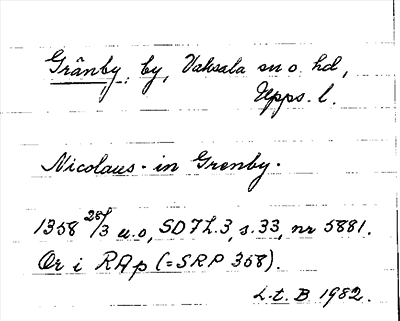 Grånby, by, Vaksala sn o. hd,
Upps. l.
Nicolaus - in Grenby.
1358 28/3 u.o, SD 7 h.3, s. 33, nr 5881.
Or i RAp (= SRP 358).
L.t. B 1982.